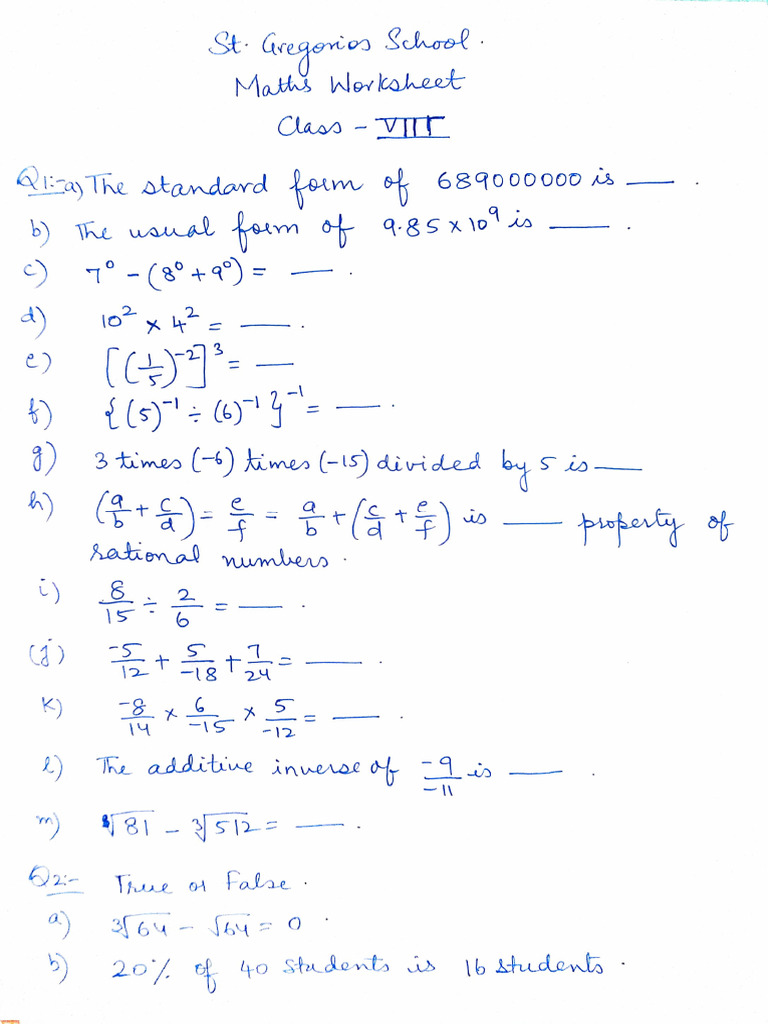 St. Gregorios School.
Maths Worksheet
Class - VIII
Q1:- a) The standard form of 689000000 is ___.
b) The usual form of 9.85 × 10⁹ is ___.
c) 7⁰ - (8⁰ + 9⁰) = ___.
d) 10² × 4² = ___.
e) [(1/5)⁻²]³ = ___
f) {(5)⁻¹ ÷ (6)⁻¹}⁻¹ = ___.
g) 3 times (-6) times (-15) divided by 5 is ___
h) (a/b + c/d) = e/f = a/b + (c/d + e/f) is ___ property of
rational numbers.
i) 8/15 ÷ 2/6 = ___.
(j) -5/12 + 5/-18 + 7/24 = ___.
k) -8/14 × 6/-15 × 5/-12 = ___.
l) The additive inverse of -9/-11 is ___.
m) √81 - ³√512 = ___.
Q2:- True or False.
a) ³√64 - √64 = 0.
b) 20% of 40 students is 16 students.